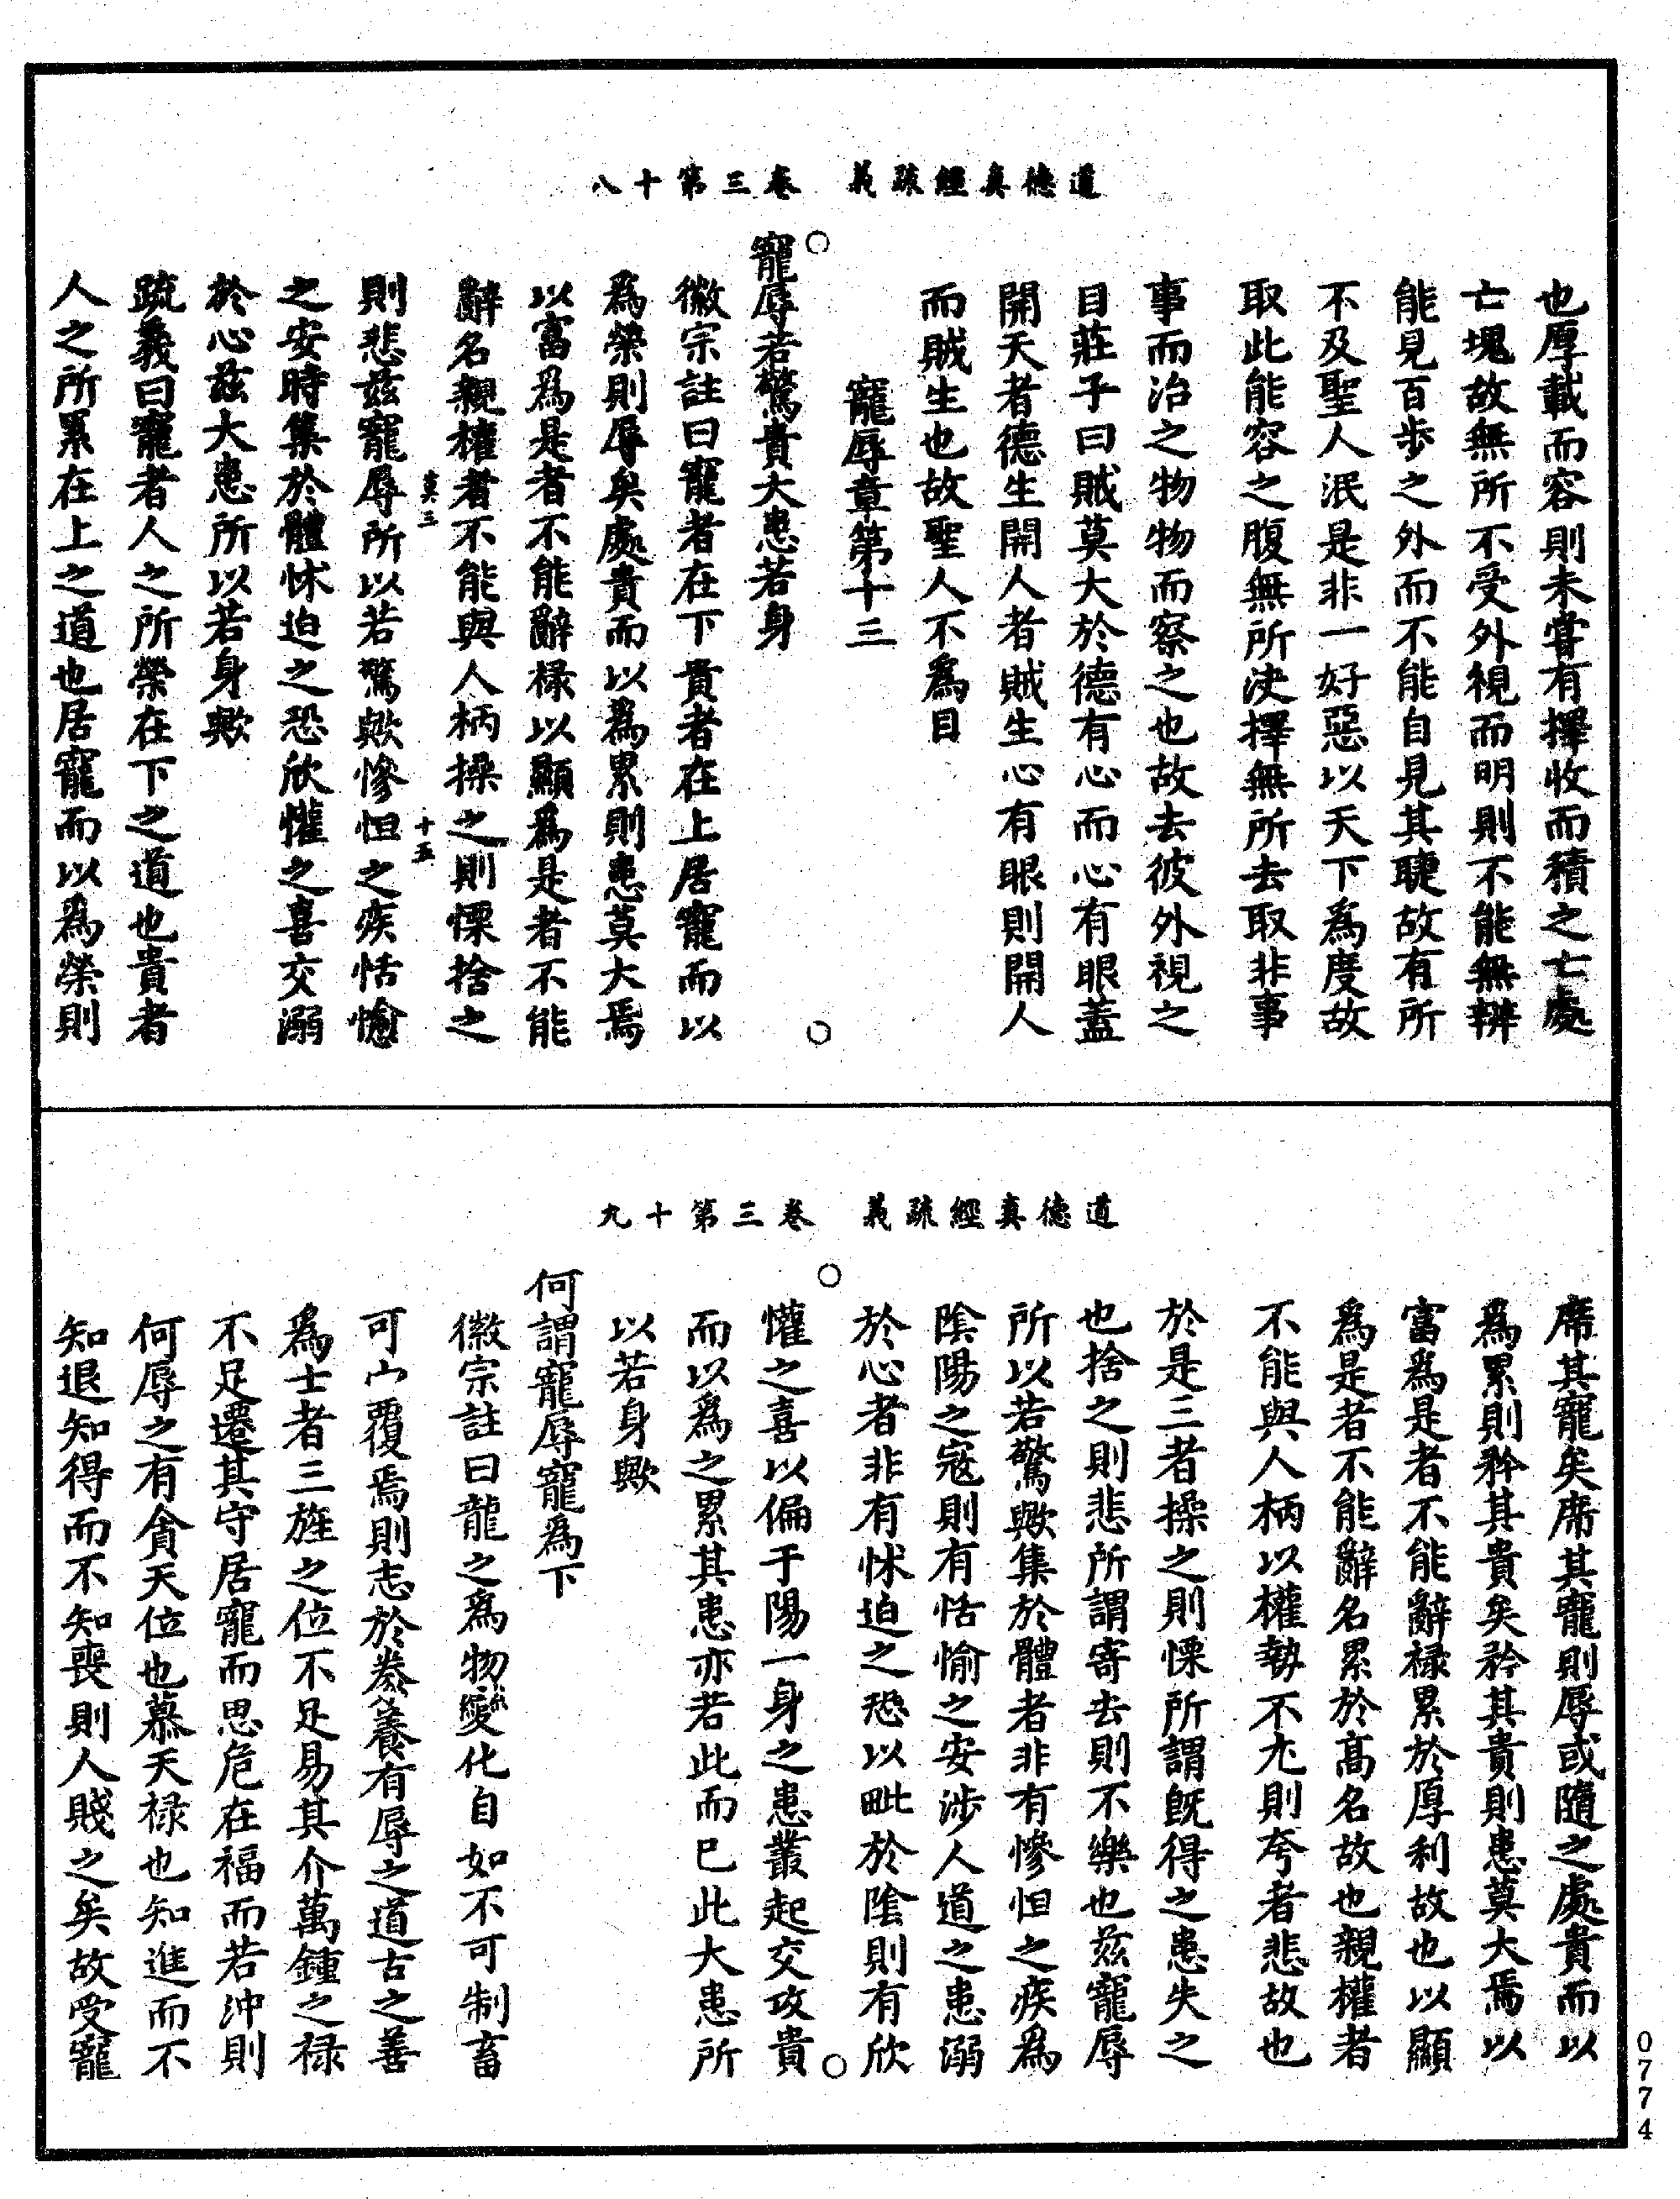 道德真經疏義　卷三第十八
也厚載而容則未甞有擇收而積之亡處
亡塊故無所不受外視而明則不能無辯
能見百步之外而不能自見其睫故有所
不及聖人泯是非一好惡以天下為度故
取此能容之腹無所決擇無所去取非事
事而治之物物而察之也故去彼外視之
目莊子曰賊莫大於德有心而心有眼蓋
開天者德生開人者賊生心有眼則開人
而賊生也故聖人不為目
寵辱章第十三
寵辱若驚貴大患若身
徽宗註曰寵者在下貴者在上居寵而以
為榮則辱矣處貴而以為累則患莫大焉
以富為是者不能辭祿以顯為是者不能
辭名親權者不能與人柄操之則慄捨之
莫三　十五
則悲茲寵辱所以若驚歟慘怛之疾恬愉
之安時集於體怵迫之恐欣懽之喜交溺
於心茲大患所以若身歟
疏義曰寵者人之所榮在下之道也貴者
人之所累在上之道也居寵而以為榮則
道德真經疏義　卷三第十九
席其寵矣席其寵則辱或隨之處貴而以
為累則矜其貴矣矜其貴則患莫大焉以
富為是者不能辭祿累於厚利故也以顯
為是者不能辭名累於高名故也親權者
不能與人柄以權勢不尤則夸者悲故也
於是三者操之則慄所謂旣得之患失之
也捨之則悲所謂寄去則不樂也茲寵辱
所以若驚歟集於體者非有慘怛之疾為
陰陽之寇則有恬愉之安涉人道之患溺
於心者非有怵迫之恐以毗於陰則有欣
懽之喜以偏于陽一身之患叢起交攻貴
而以為之累其患亦若此而已此大患所
以若身歟
何謂寵辱寵為下
徽宗註曰龍之為物變化自如不可制畜
可宀覆焉則志於豢養有辱之道古之善
為士者三旌之位不足易其介萬鍾之祿
不足遷其守居寵而思危在福而若沖則
何辱之有貪天位也慕天祿也知進而不
知退知得而不知喪則人賤之矣故受寵
0774